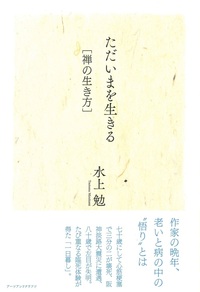 ただいまを生きる
[禅の生き方]
水上 勉
作家の晩年、
老いと病の中の
“悟り”とは
七十歳にして心筋梗塞
で三分の二が壊死、阪
神淡路大震災に遭遇。
八十歳で左目が失明。
たび重なる臨死体験が
得た「一日暮し」。